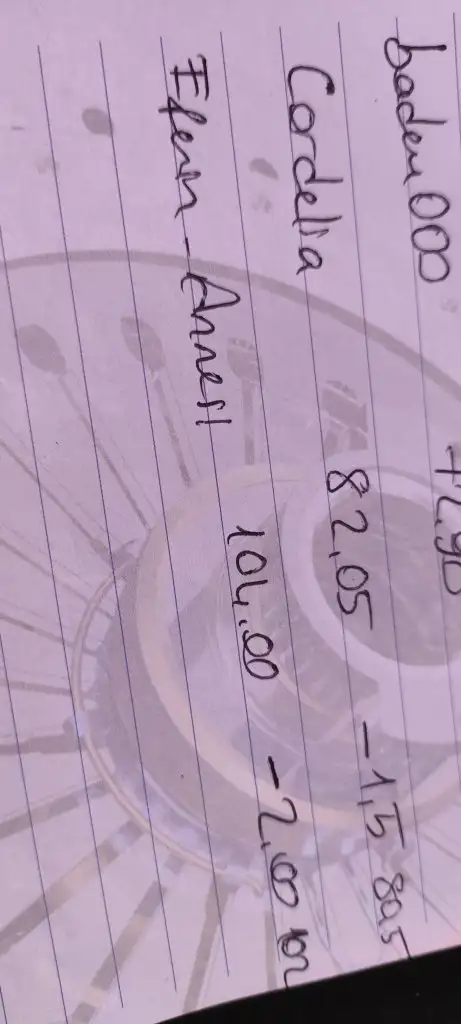 badem000 72,90
Cordelia 82,05 -1,5 80,5
Annesi 104,00 -2,00 102